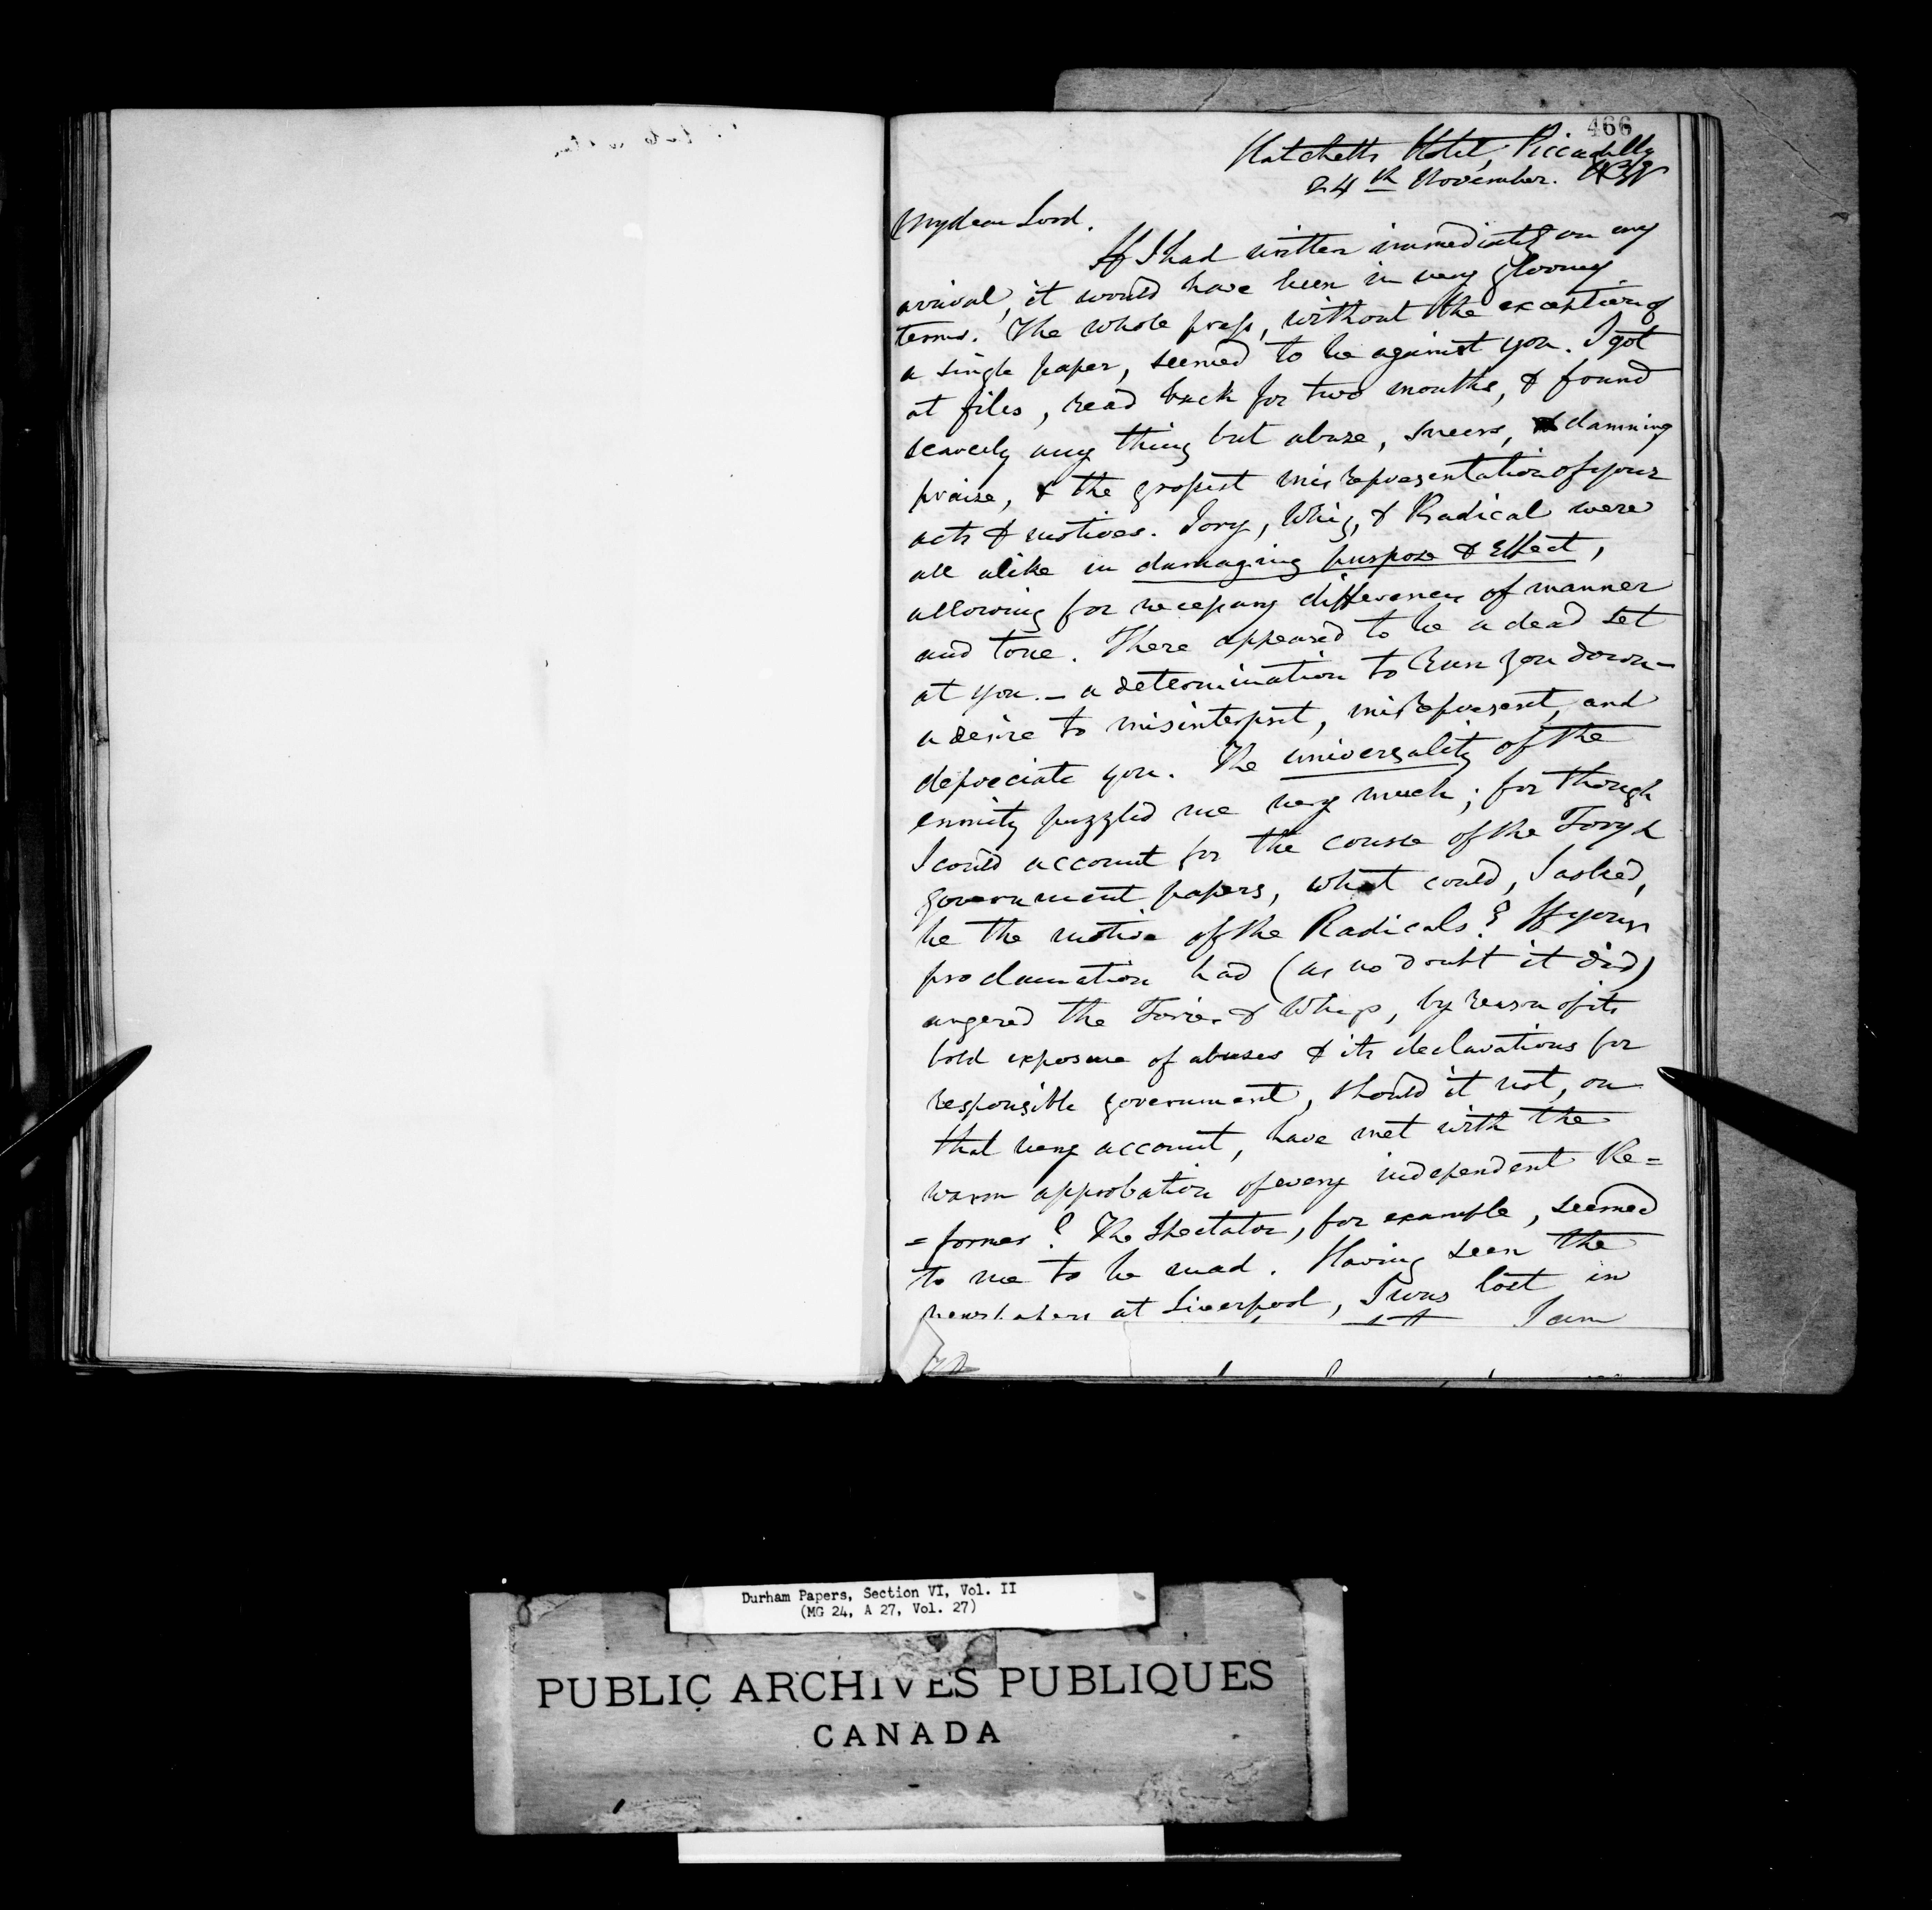 466
Hatchetts Hotel, Piccadilly
24th November. 1838
My dear Lord.
If I had written immediately on my
arrival, it would have been in very gloomy
terms. The whole press, without the exception of
a single paper, seemed to be against you. I got
at files, read back for two months, & found
scarcely any thing but abuse, sneers, damning
praise, & the grossest misrepresentation of your
acts & motives. Tory, Whig, & Radical were
all alike in damaging purpose & effect,
allowing for necessary differences of manner
and tone. There appeared to be a dead set
at you. – a determination to run you down –
a desire to misinterpret, misrepresent, and
depreciate you. The universality of the
enmity puzzled me very much; for though
I could account for the course of the Tory &
government papers, what could, I asked,
be the motive of the Radicals? If your
proclamation had (as no doubt it did)
angered the Tories & Whigs, by reason of its
bold exposure of abuses & its declarations for
responsible government, should it not, on
that very account, have met with the
warm approbation of every independent Re=
=former? The Spectator, for example, seemed
to me to be mad. Having seen the
newspapers at Liverpool, I was lost in
I am
Durham Papers, Section VI, Vol. II
(MG 24, A 27, Vol. 27)
PUBLIC ARCHIVES PUBLIQUES
CANADA